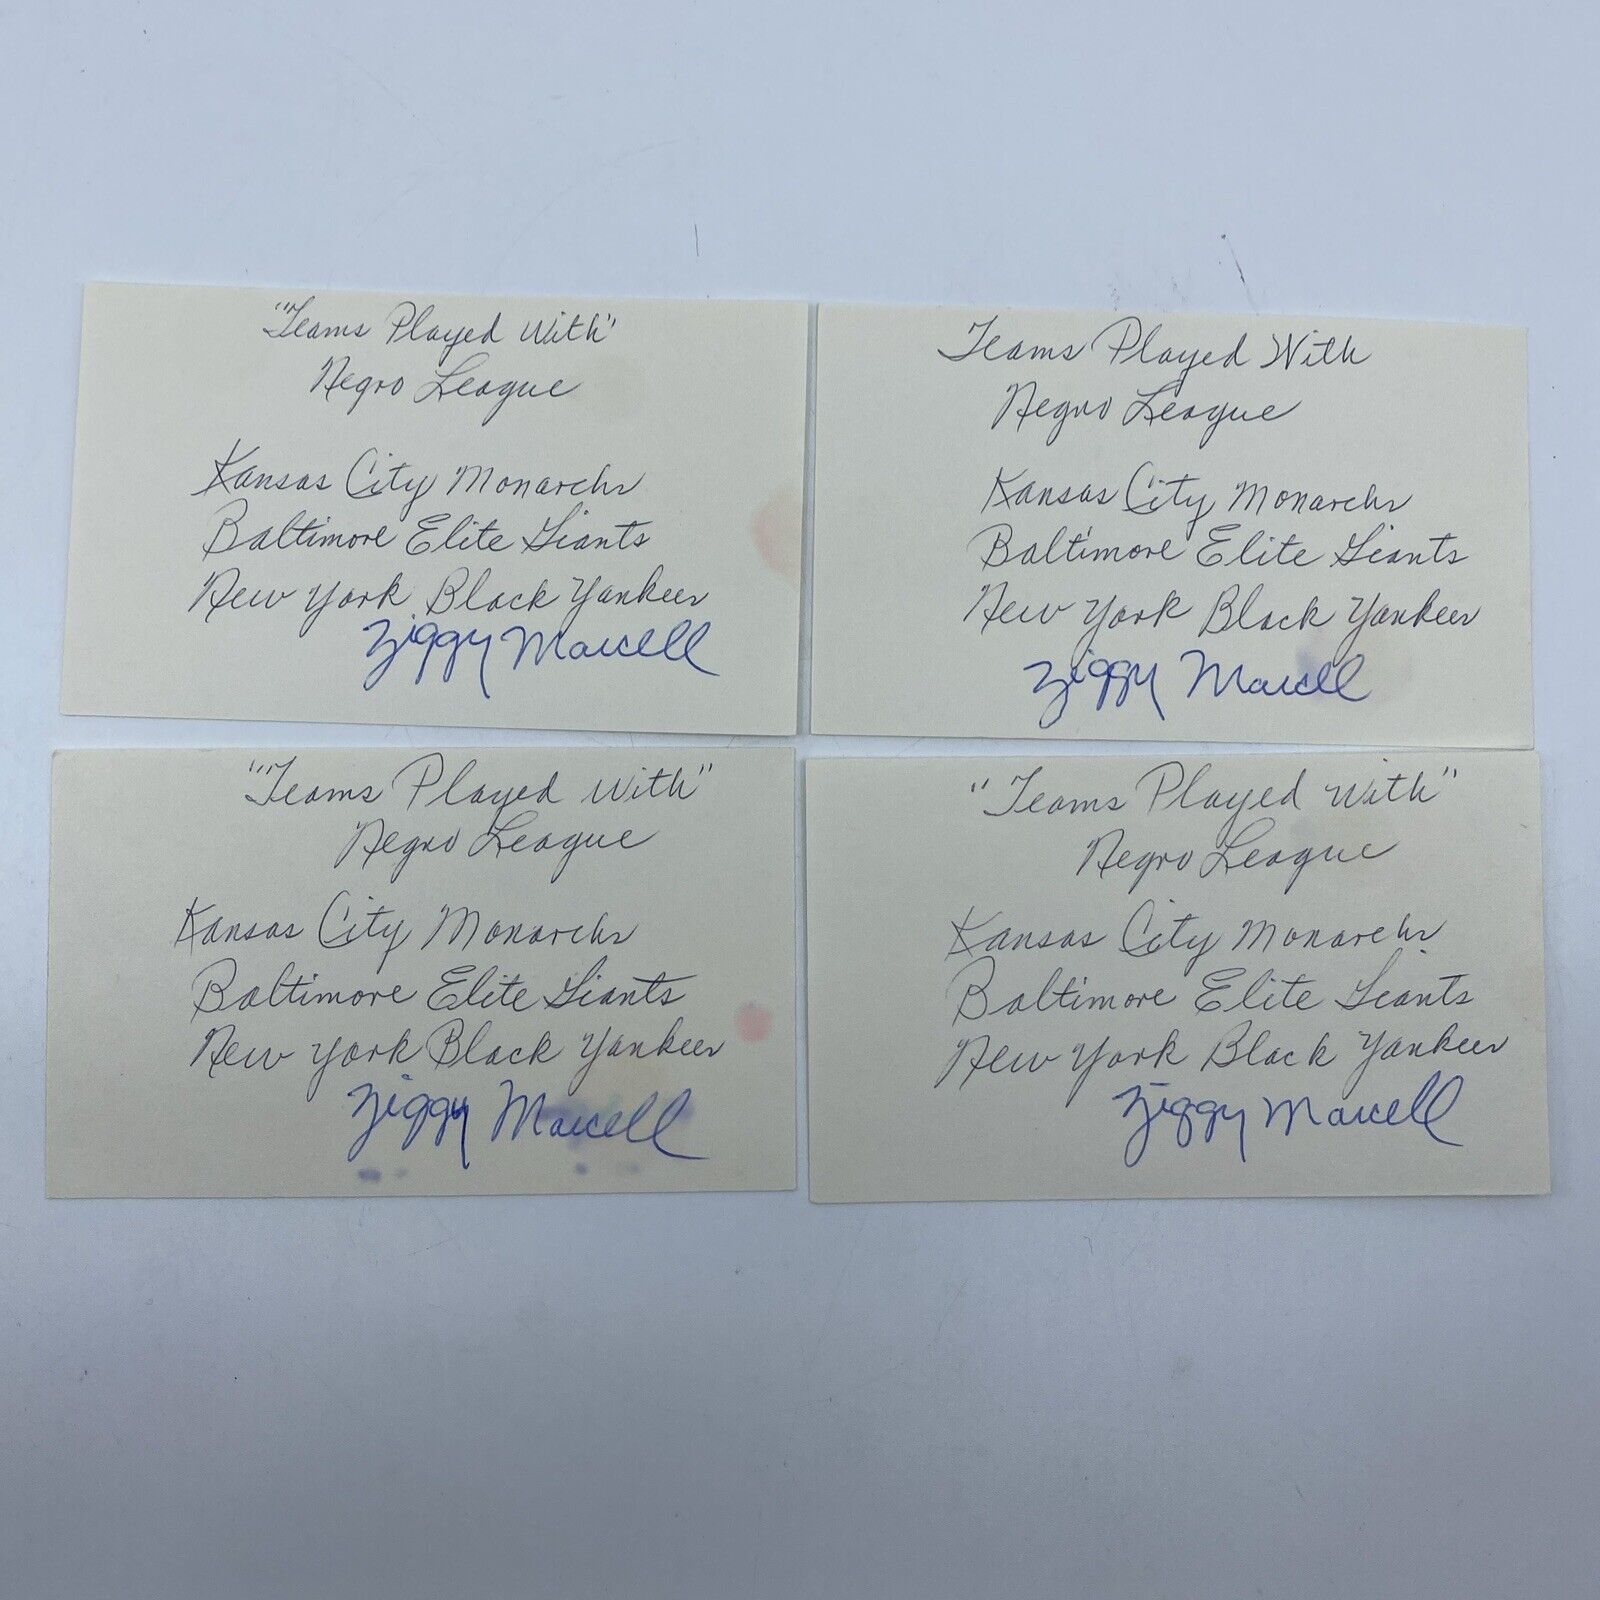 "Teams Played With"
Negro League
Kansas City Monarchs
Baltimore Elite Giants
New York Black Yankees
Ziggy Marcell
Teams Played With
Negro League
Kansas City Monarchs
Baltimore Elite Giants
New York Black Yankees
Ziggy Marcell
"Teams Played With"
Negro League
Kansas City Monarchs
Baltimore Elite Giants
New York Black Yankees
Ziggy Marcell
"Teams Played With"
Negro League
Kansas City Monarchs
Baltimore Elite Giants
New York Black Yankees
Ziggy Marcell